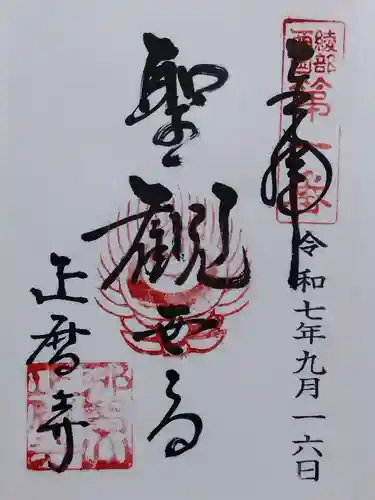 奉拝
綾部
西国
第一番
令和七年九月一六日
聖観世音
正暦寺